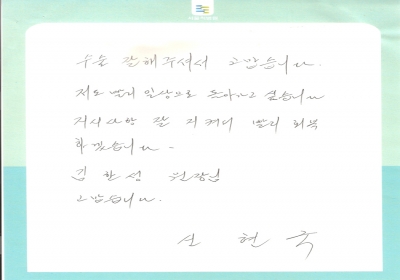 수술 잘해주셔서 고맙습니다.
저도 빨리 일상으로 돌아가고 싶습니다
지시사항 잘 지켜서 빨리 회복
하겠습니다.
김한성 원장님
고맙습니다.
신 현 국